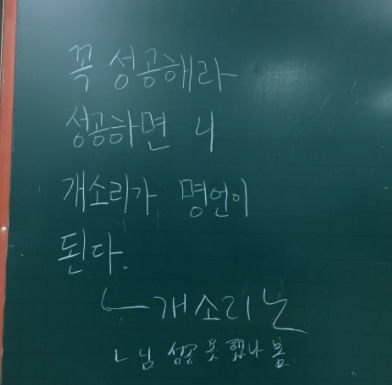 꼭 성공해라
성공하면 니
개소리가 명언이
된다.
ㄴ개소리노
ㄴ님 성공 못 했나 봄